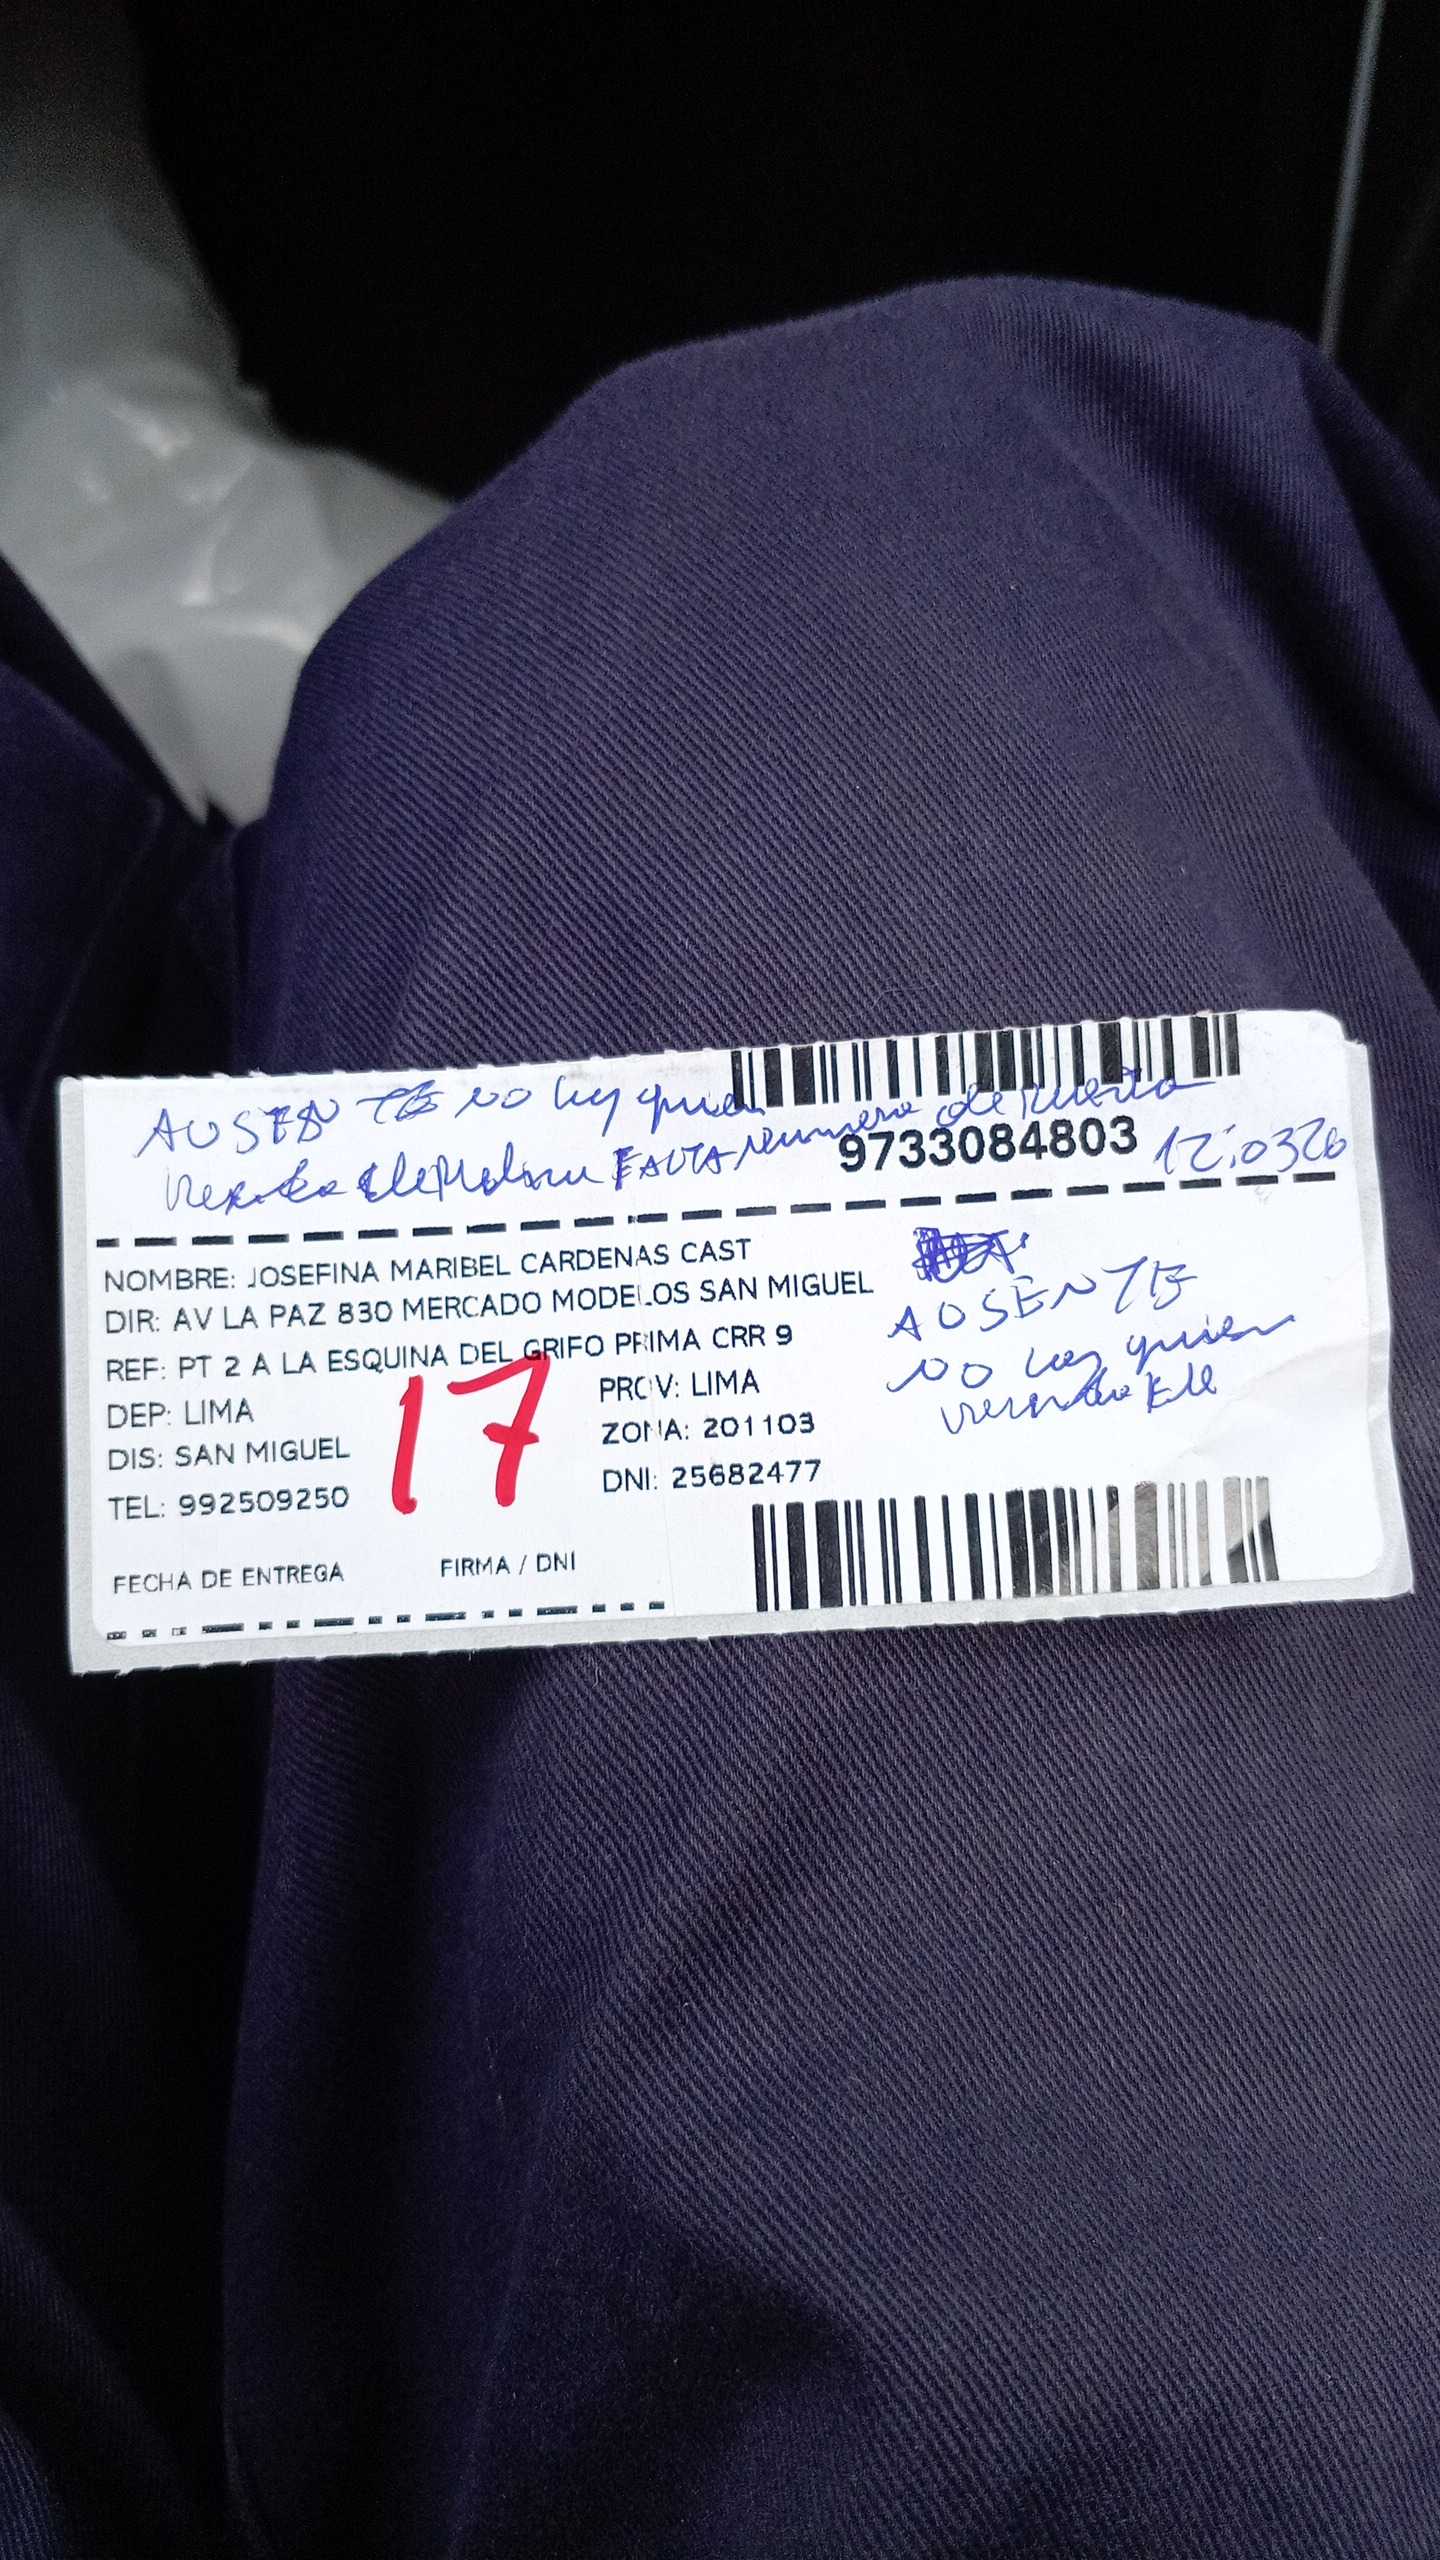 AUSENTE no hay quien
FALTA numero de puerta
9733084803 12:0326
NOMBRE: JOSEFINA MARIBEL CARDENAS CAST
DIR: AV LA PAZ 830 MERCADO MODELOS SAN MIGUEL
REF: PT 2 A LA ESQUINA DEL GRIFO PRIMA CRR 9
DEP: LIMA
PROV: LIMA
DIS: SAN MIGUEL
ZONA: 201103
TEL: 992509250
DNI: 25682477
17
AUSENTE
no hay quien
FECHA DE ENTREGA
FIRMA / DNI